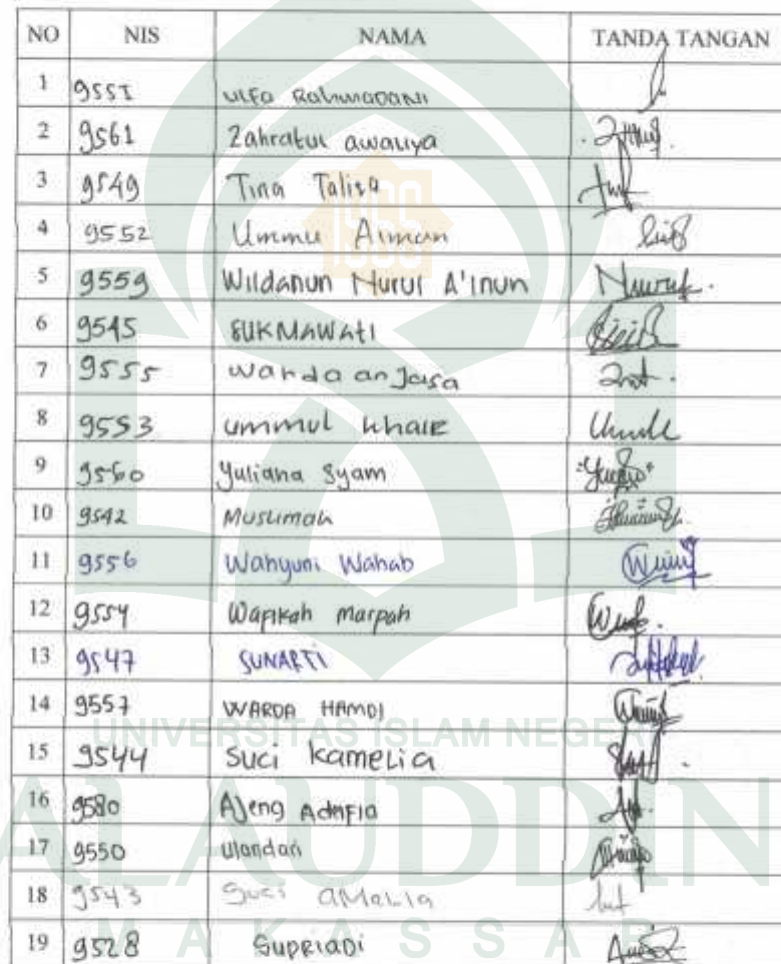 NO NIS NAMA TANDA TANGAN
1 9551 Ulfa Rahmadani
2 9561 Zahratul awaliya
3 9549 Tina Talisa
4 9552 Ummu Aiman
5 9559 Wildanun Nurul A'inun
6 9545 SUKMAWATI
7 9555 Warda anjasa
8 9553 ummul khair
9 9560 Yuliana Syam
10 9542 Muslimah
11 9556 Wahyuni Wahab
12 9554 Wafikah marpah
13 9547 SUNARTI
14 9557 WARDA HAMDI
UNIVERSITAS ISLAM NEGERI
15 9544 Suci Kamelia
16 9580 Ajeng Adafia
17 9550 Wandari
ALAUDDIN
18 9543 Suci AMelia
19 9528 SUPRIADI
MAKASSAR
1965